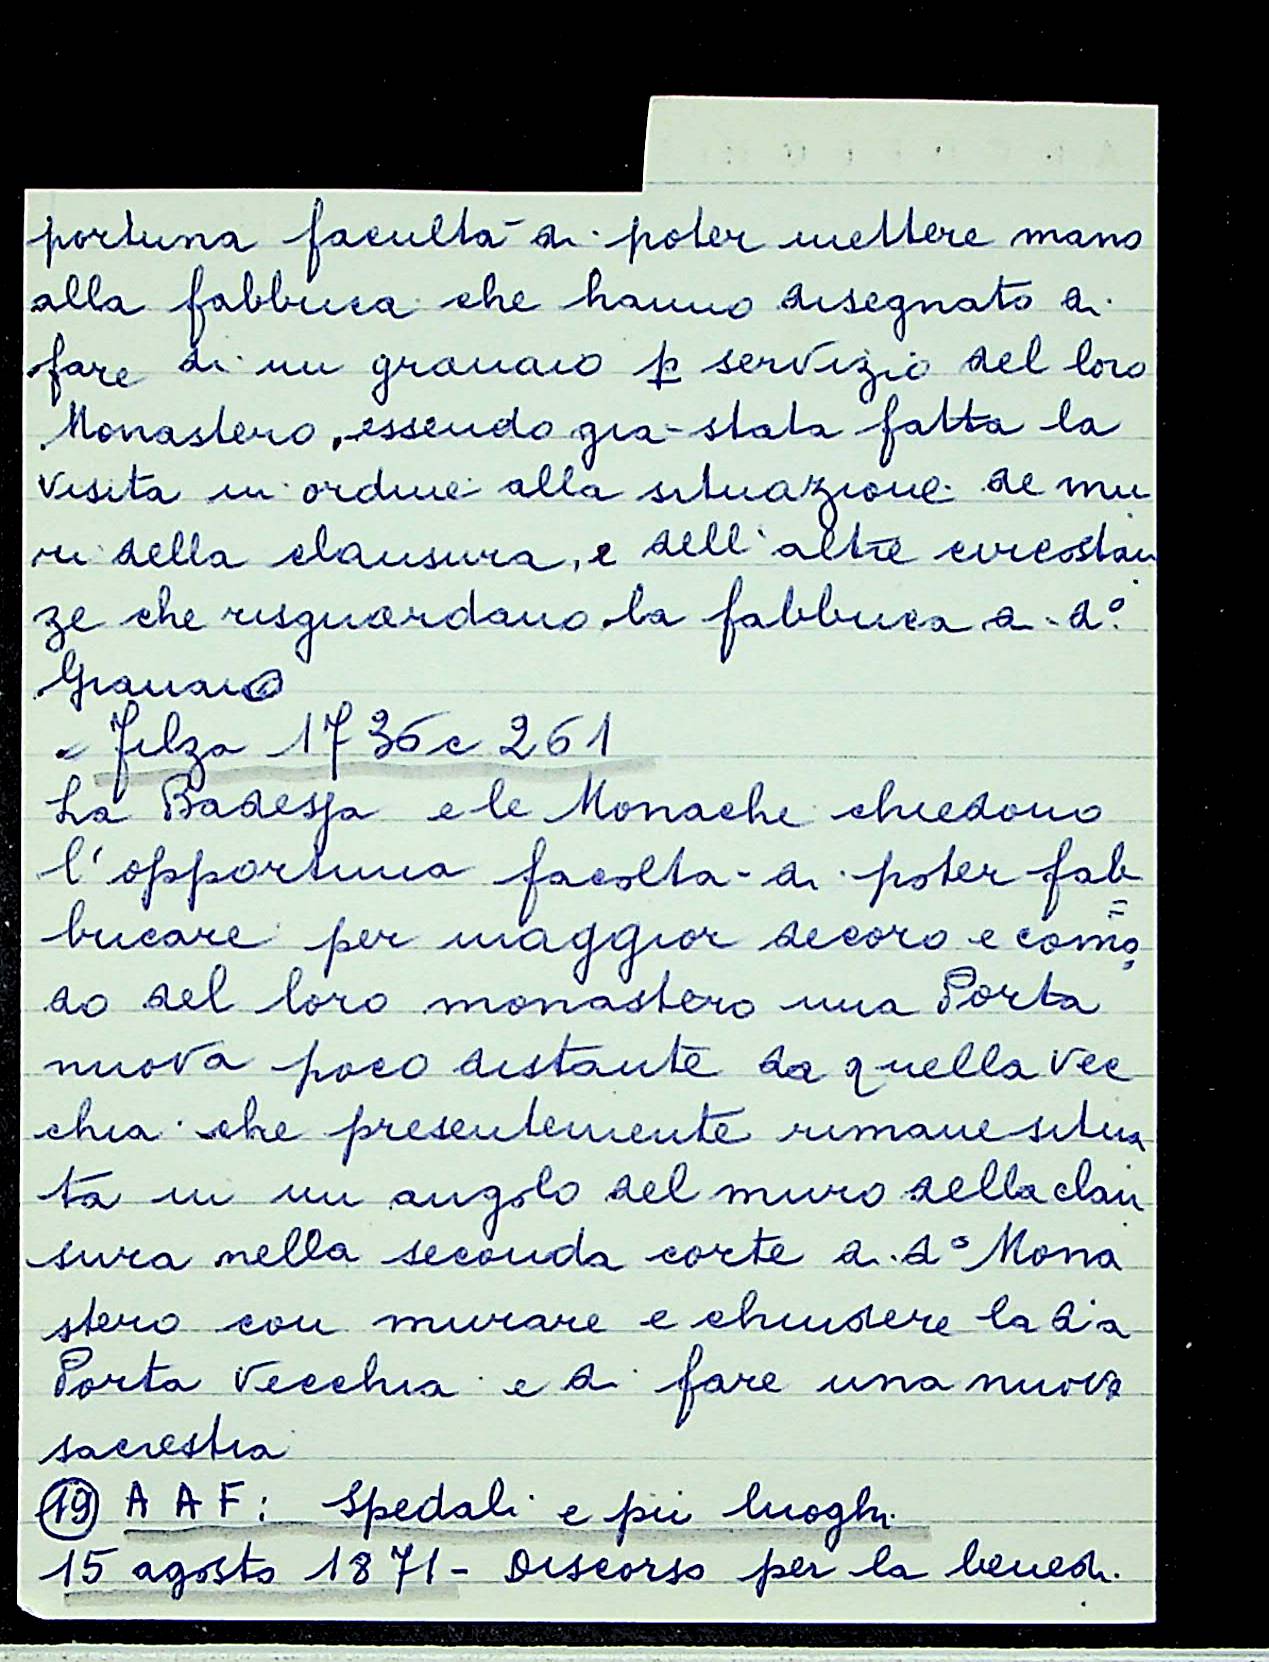 portuna facultà di poter mettere mano
alla fabbrica che hanno disegnato di
fare di un granaio p servizio del loro
Monastero, essendo già stata fatta la
visita in ordine alla situazione de mu
ri della clausura, e dell'altre circostan
ze che risguardano la fabbrica di d.º
Granaio
Filza 1736 c 261
La Badessa e le Monache chiedono
l'opportuna facoltà di poter fab
=
bricare per maggior decoro e como
do del loro monastero una Porta
nuova poco distante da quella vec
chia che presentemente rimane situa
ta in un angolo del muro della clau
sura nella seconda corte di dº Mona
stero con murare e chiudere la d'a
Porta vecchia e di fare una nuova
sacrestia
19 A A F: Spedali e pii luoghi
15 agosto 1871 - Discorso per la benedi.